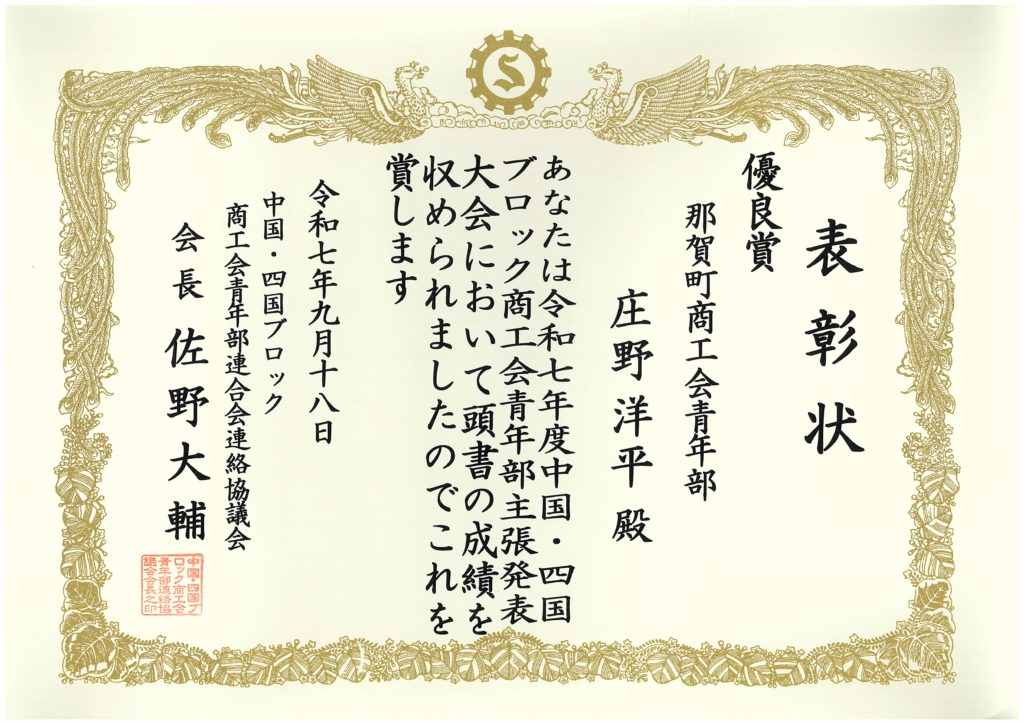 表彰状
優良賞
那賀町商工会青年部
庄野洋平殿
あなたは令和七年度中国・四国
ブロック商工会青年部主張発表
大会において頭書の成績を
収められましたのでこれを
賞します
令和七年九月十八日
中国・四国ブロック
商工会青年部連合会連絡協議会
会長 佐野大輔
中国・四国ブ
ロック商工会
青年部連絡協
議会会長之印
S